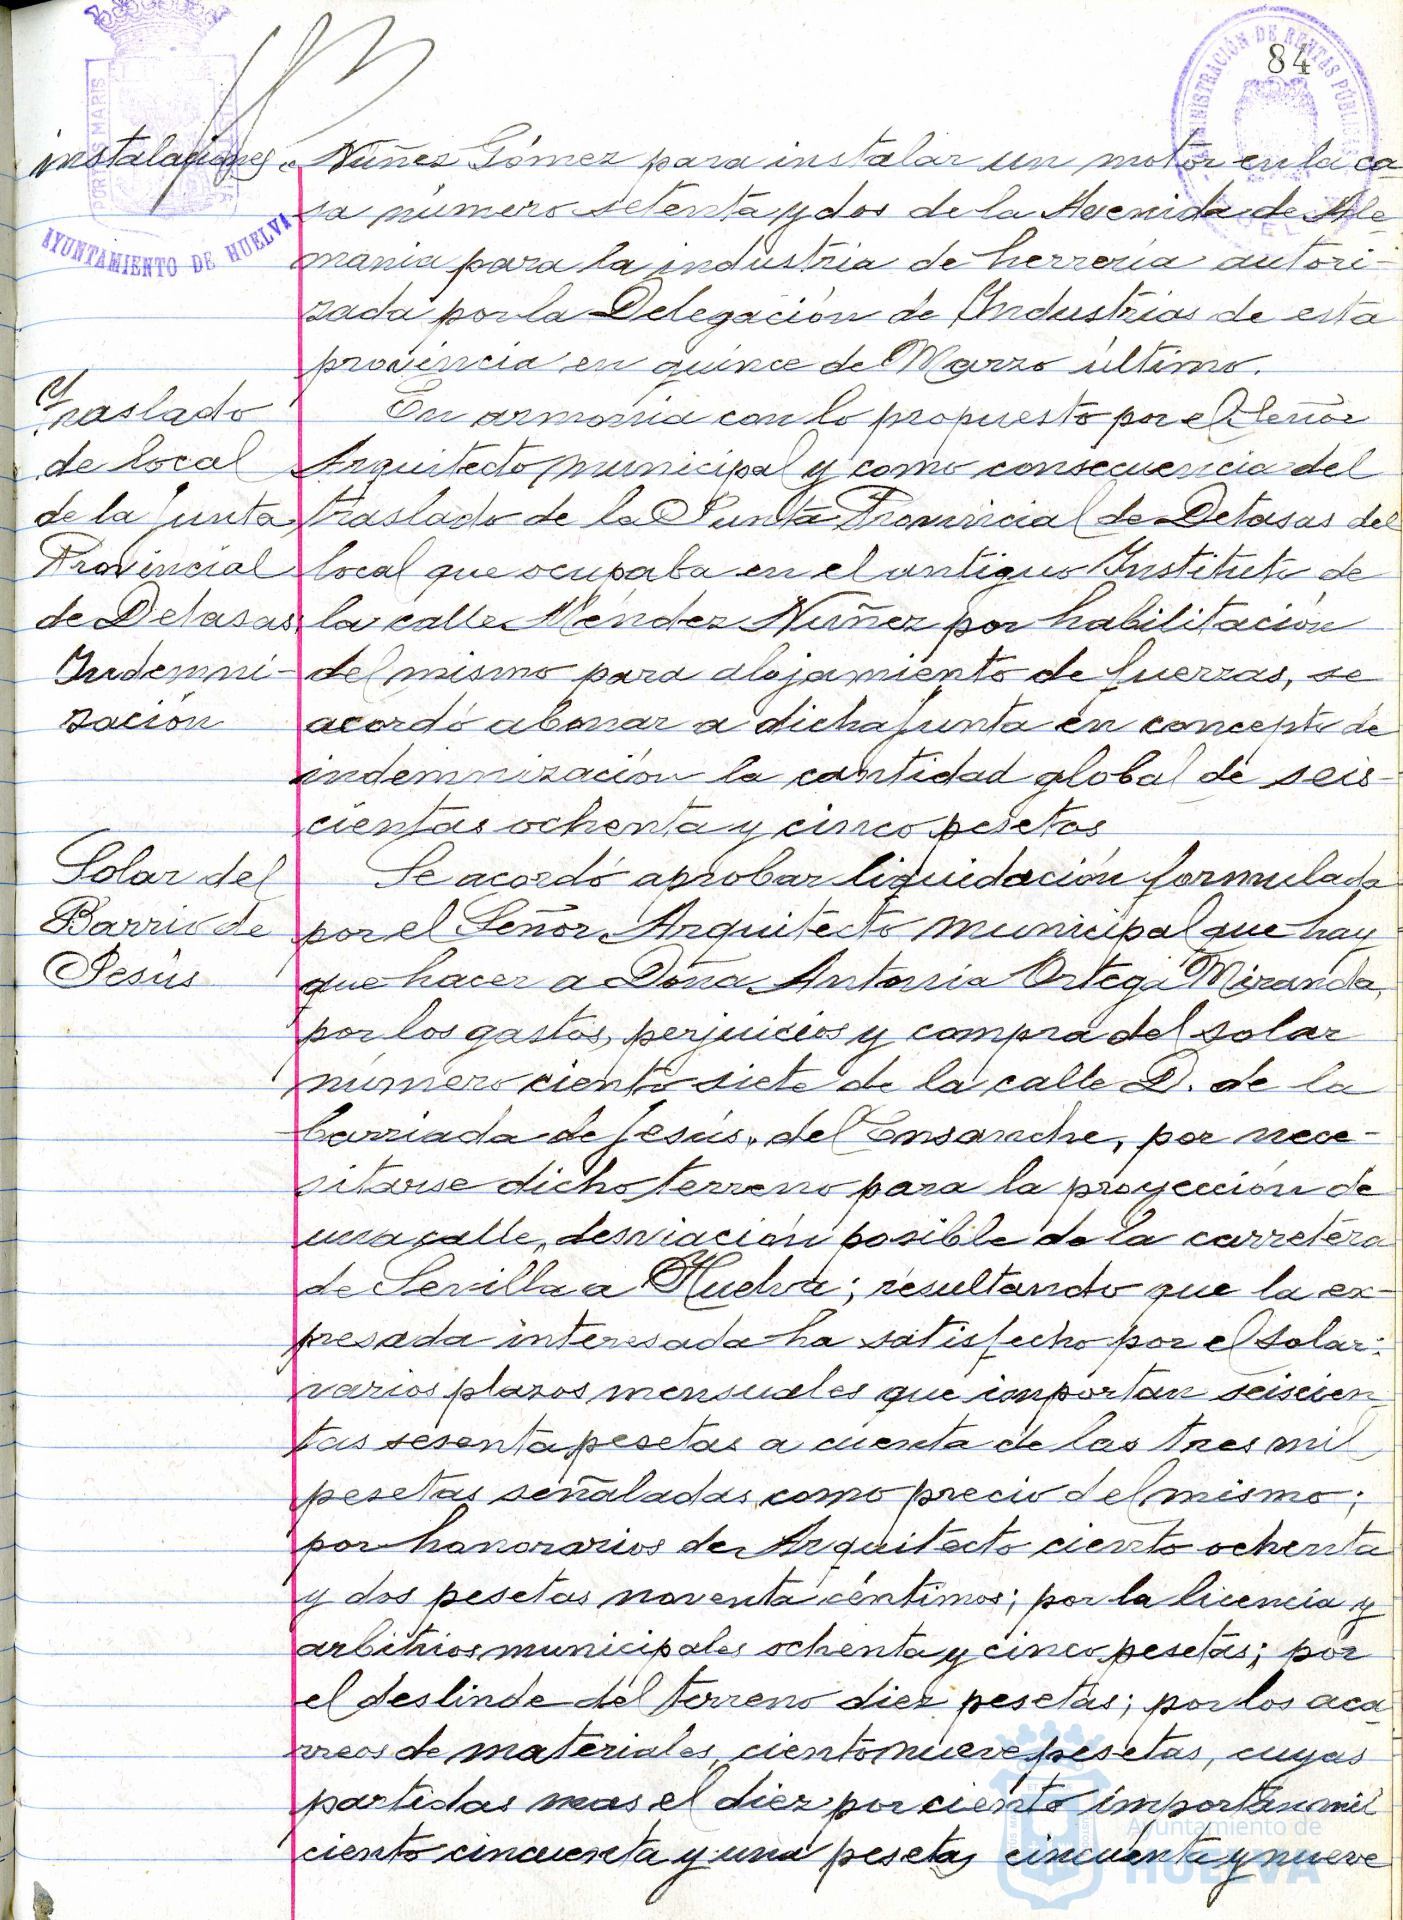 84
PORTUS MARIS
AYUNTAMIENTO DE HUELVA
ADMINISTRACIÓN DE RENTAS PÚBLICAS
instalaciones
Núñez Gómez para instalar un motor en la ca-
sa número setenta y dos de la Avenida de Ale-
mania para la industria de herrería autori-
zada por la Delegación de Industrias de esta
provincia en quince de Marzo último.
Traslado
de local
de la Junta
Provincial
de Detasas.
Indemni-
zación
En armonia con lo propuesto por el Señor
Arquitecto municipal y como consecuencia del
traslado de la Junta Provincial de Detasas del
local que ocupaba en el antiguo Instituto de
la calle Méndez Núñez por habilitación
del mismo para alojamiento de fuerzas, se
acordó abonar a dicha Junta en concepto de
indemnización la cantidad global de seis-
cientas ochenta y cinco pesetas
Solar del
Barrio de
Jesús
Se acordó aprobar liquidación formulada
por el Señor Arquitecto municipal que hay
que hacer a Doña Antonia Ortega Miranda,
por los gastos, perjuicios y compra del solar
número ciento siete de la calle D. de la
barriada de Jesús, del Ensanche, por nece-
sitarse dicho terreno para la proyección de
una calle, desviación posible de la carretera
de Sevilla a Huelva; resultando que la ex-
presada interesada ha satisfecho por el solar:
varios plazos mensuales que importan seiscien-
tas sesenta pesetas a cuenta de las tres mil
pesetas señaladas como precio del mismo;
por honorarios de Arquitecto ciento ochenta
y dos pesetas noventa céntimos; por la licencia y
arbitrios municipales ochenta y cinco pesetas; por
el deslinde del terreno diez pesetas; por los aca-
rreos de materiales, ciento nueve pesetas, cuyas
partidas mas el diez por ciento importan mil
ciento cincuenta y una pesetas cincuenta y nueve
Ayuntamiento de
HUELVA